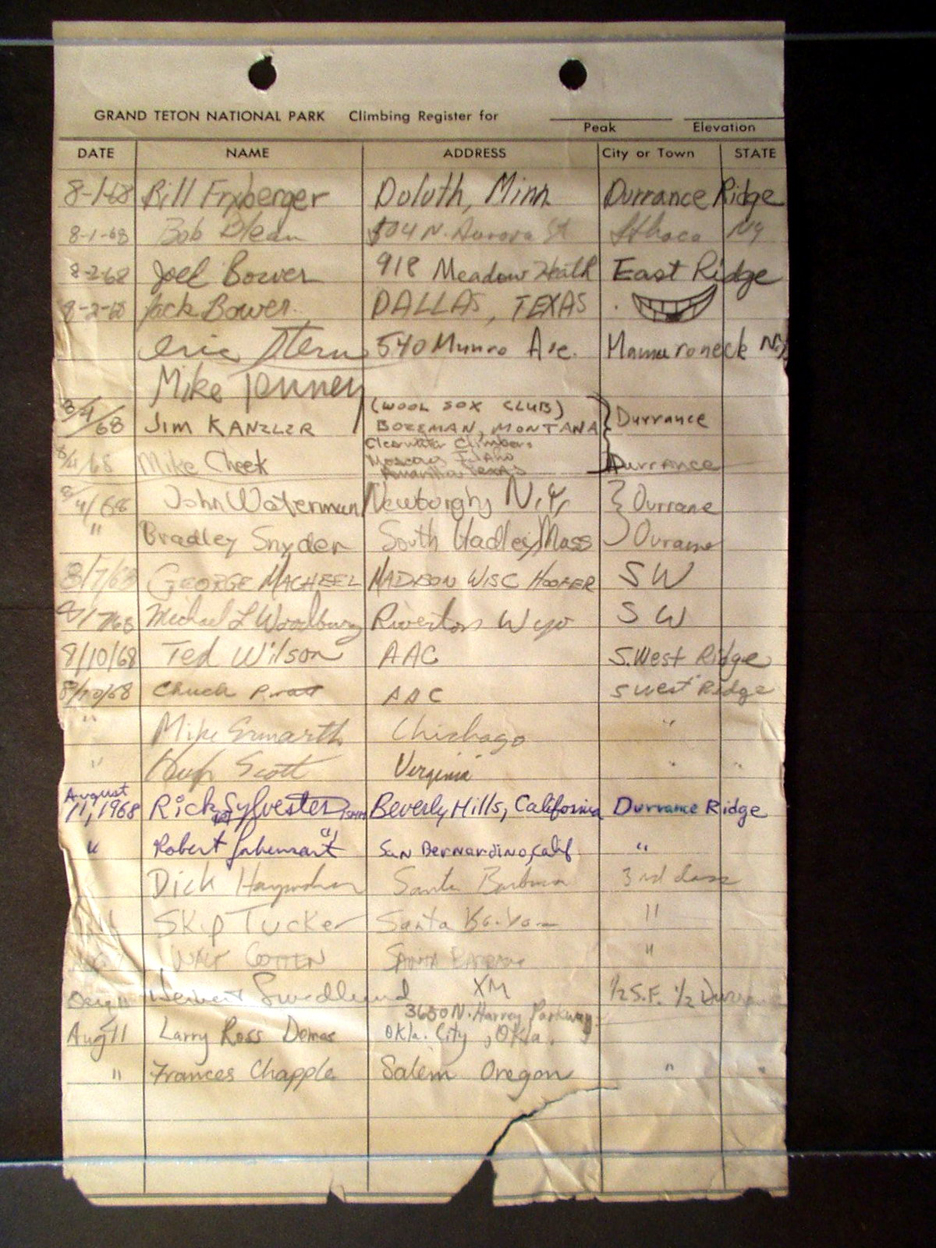 GRAND TETON NATIONAL PARK Climbing Register for
Peak Elevation
DATE NAME ADDRESS City or Town STATE
8-1-68 Bill Fryberger Doluth, Minn Durrance Ridge
8-1-68 Bob 504 N. Aurora St Ithaca NY
8-2-68 Joel Bower 918 Meadow Heath East Ridge
8-2-68 Jack Bower. DALLAS, TEXAS
Eric Stern 540 Munro Ave. Mamaroneck NY
Mike Tenney
8/4/68 JIM KANZLER (WOOL SOX CLUB)
BOZEMAN, MONTANA Durrance
Clearwater Climbers
68 Mike Cheek Moscow Idaho Durrance
Amarillo Texas
8/4/68 John Waterman Newburgh, N.Y. Durrane
" Bradley Snyder South Hadley, Mass Durrane
8/7/68 GEORGE MACHEEL MADISON WISC HOOFER SW
8/7/68 Michael L Woodbury Riverton Wyo SW
8/10/68 Ted Wilson AAC S.West Ridge
8/10/68 Chuck Pratt AAC S West Ridge
" Mike Ermarth Chichago "
" Scott Virginia " "
August
11, 1968 Rick Sylvester Beverly Hills, California Durrance Ridge
" Robert San Bernardino, Calif "
Dick Santa Barbara 3rd class
Skip Tucker Santa "
WALT SANTA BARBARA "
Swedlund XM 1/2 S.F. 1/2 Durrance
3650 N. Harvey Parkway
Aug 11 Larry Ross Demas Okla. City, Okla.
" Frances Chapple Salem Oregon " "